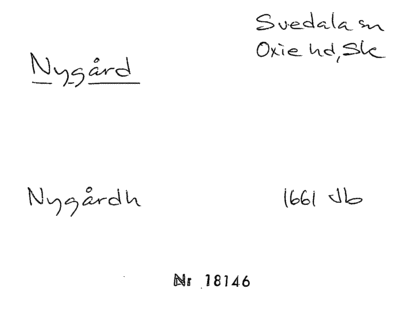 Svedala sn
Oxie hd, Sk
Nygård
Nygårdh 1661 Jb
Nr 18146